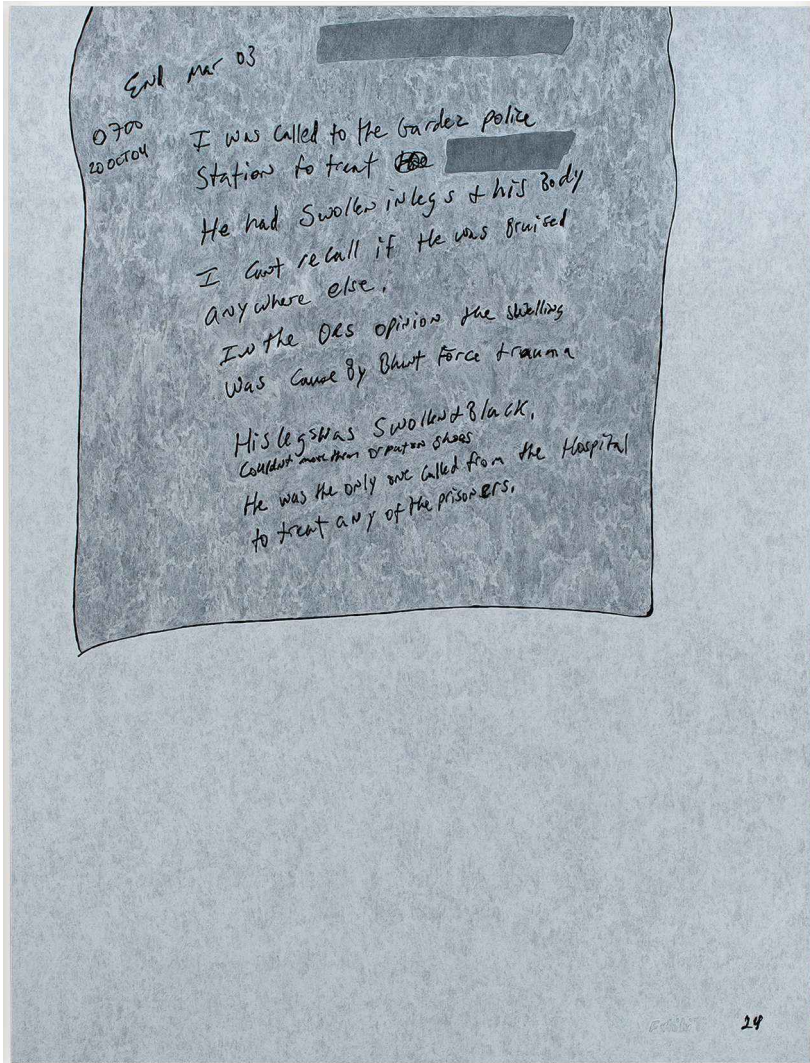 End Mar 03
0700
20 OCT 04
I was called to the Gardez police
Station to treat
He had Swollen in legs & his Body
I cant recall if He was Bruised
anywhere else.
In the DRs opinion the swelling
was cause By Blunt Force trauma
His legs was Swollen & Black.
Couldnt move them or put on shoes
He was the only one called from the Hospital
to treat any of the prisoners.
24